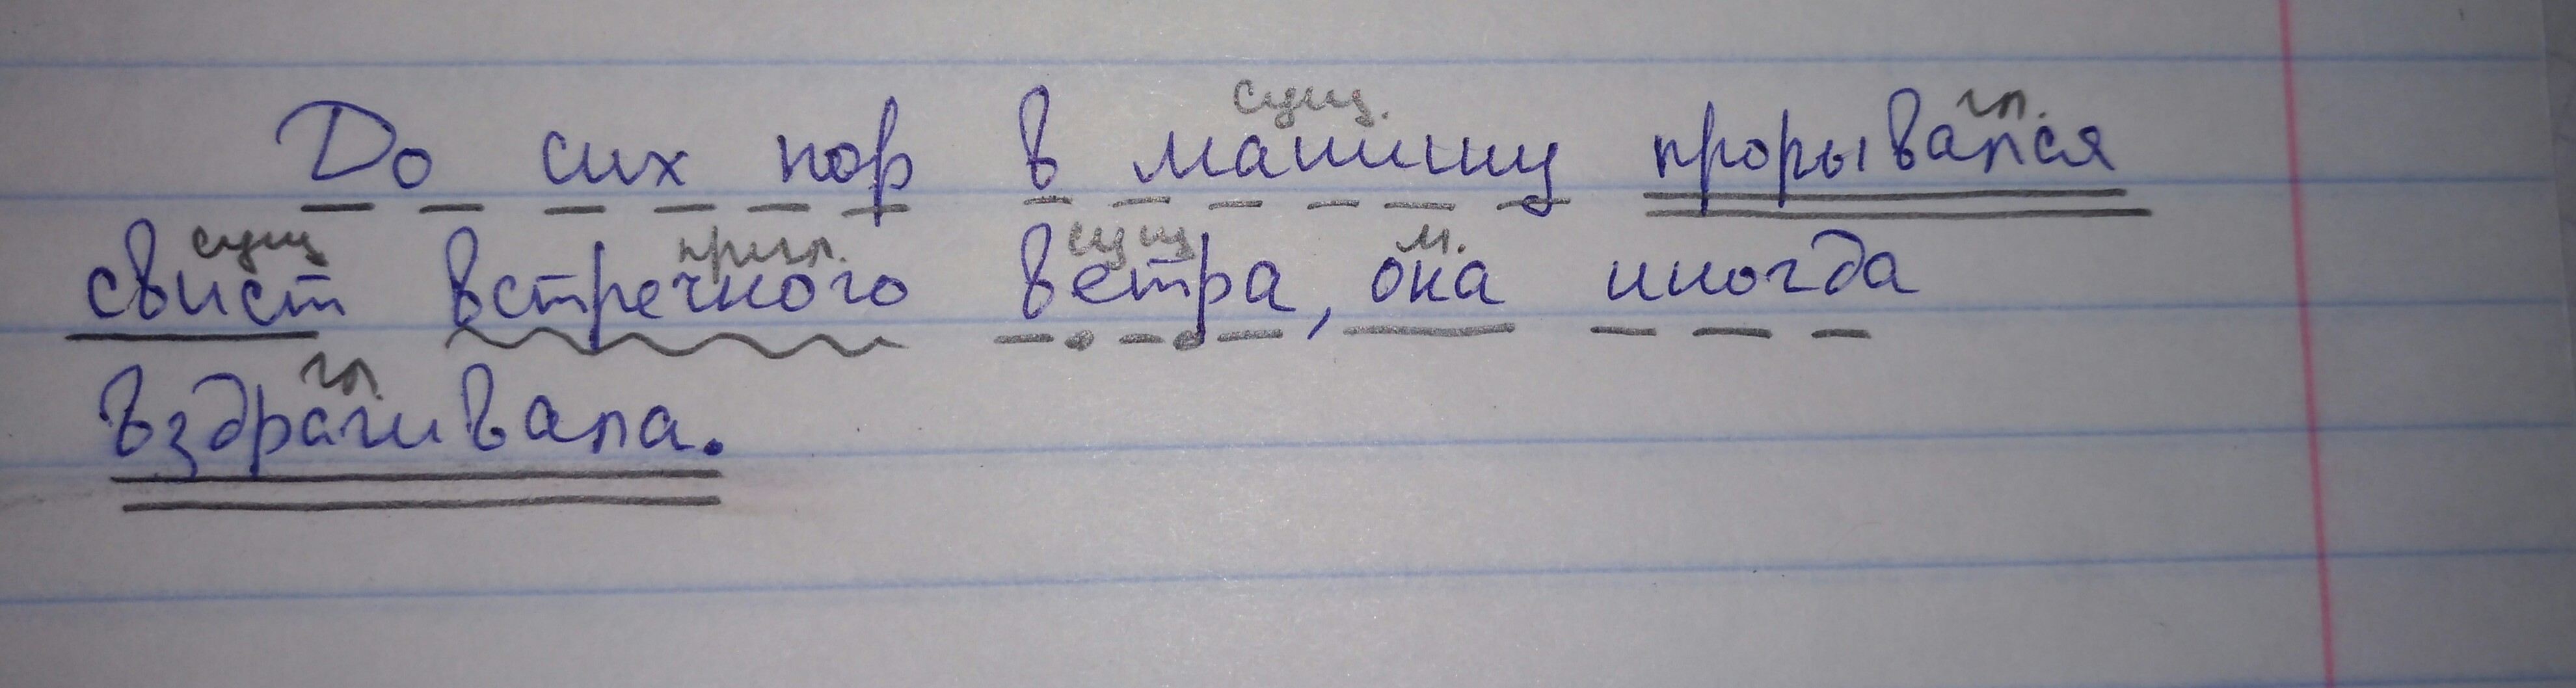 сущ. гл.
До сих пор в машину прорывался
сущ прил. сущ м.
свист встречного ветра, она иногда
гл.
вздрагивала.